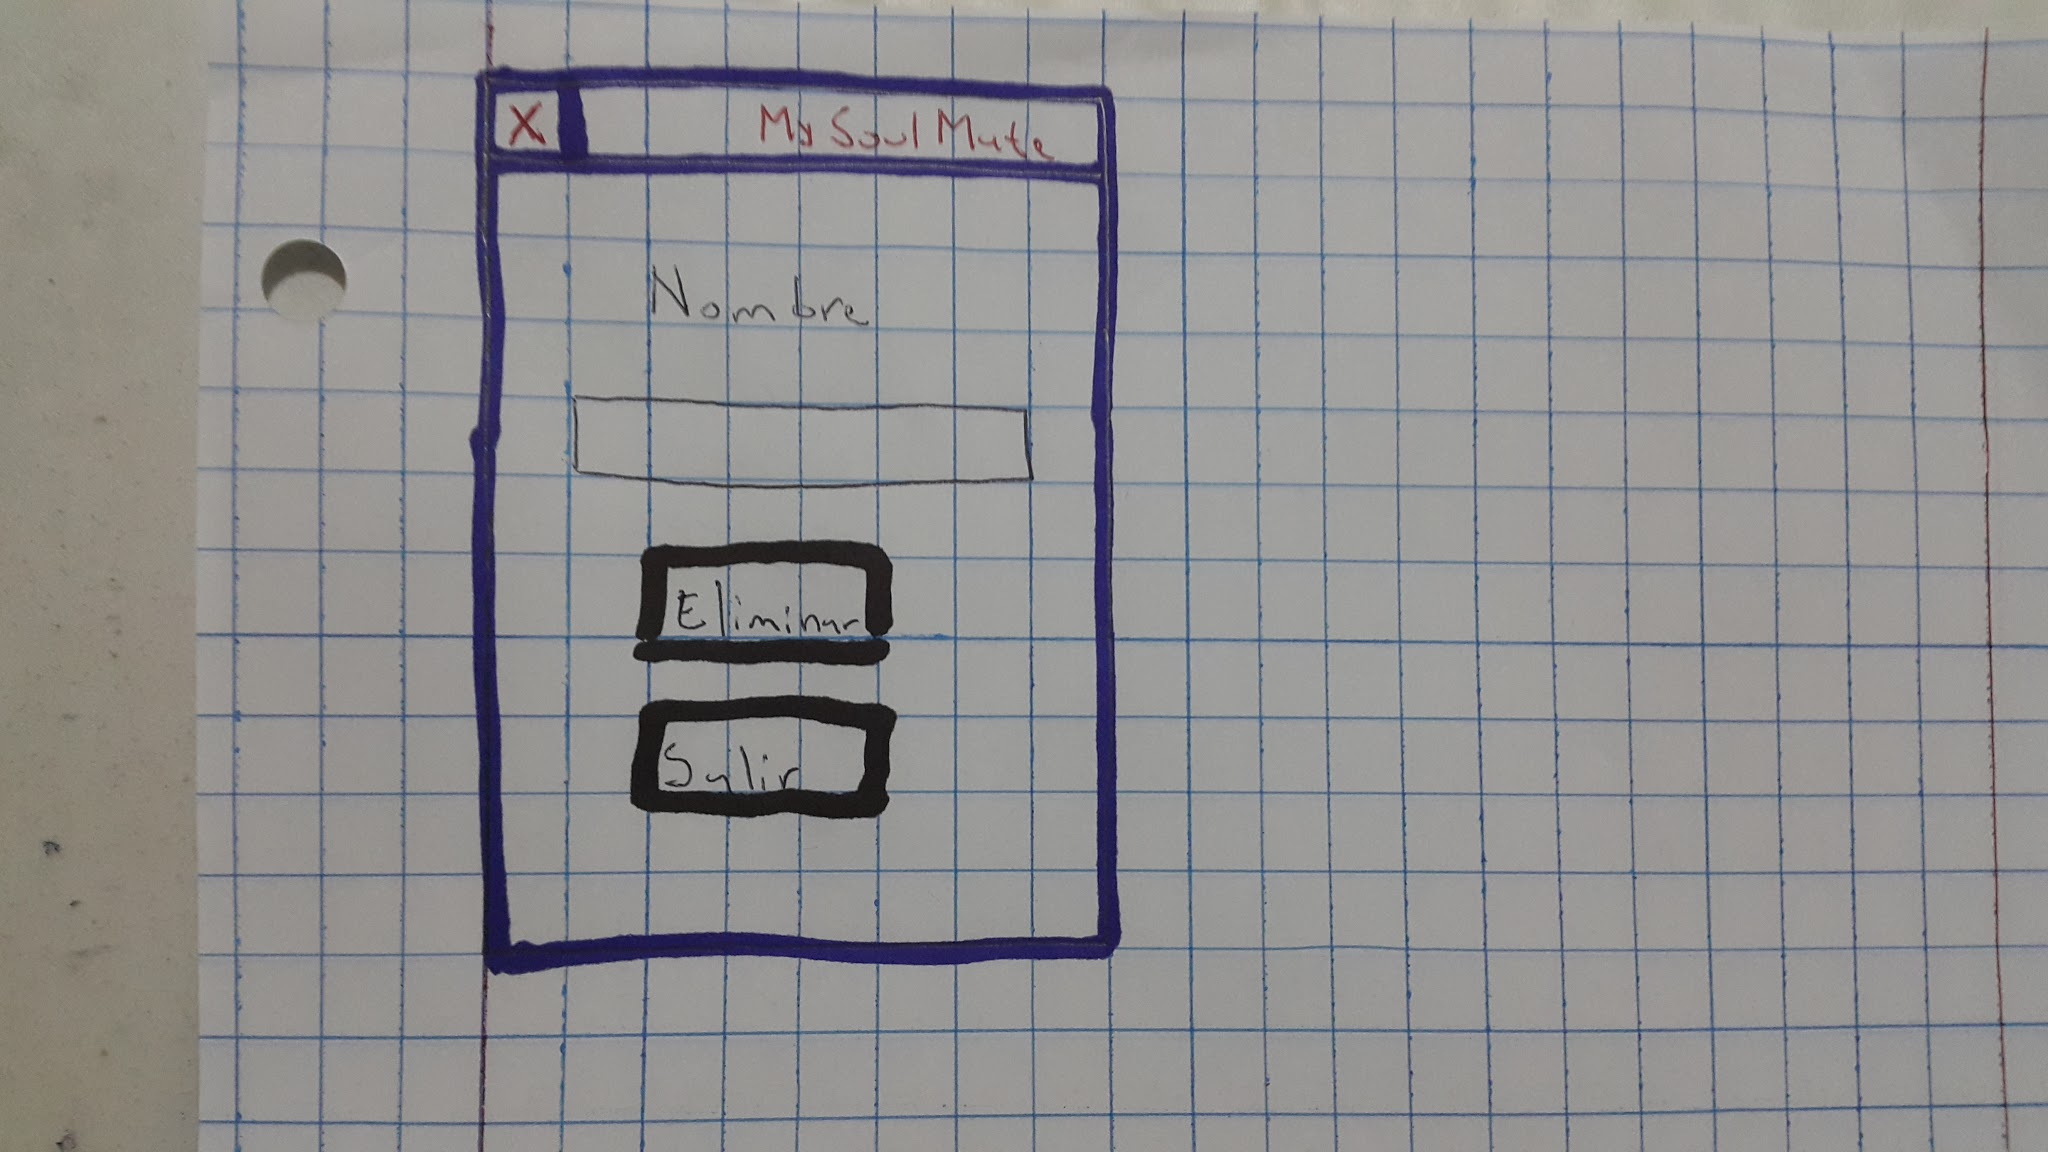 X My Soul Mate
Nombre
Eliminar
Salir